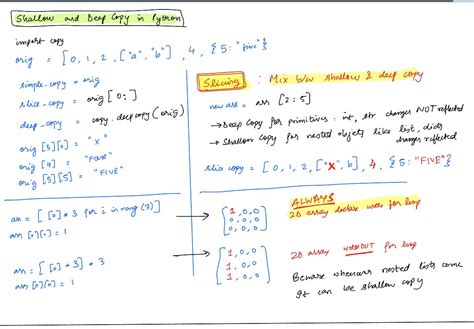 Shallow and Deep Copy in Python
import copy
orig = [0, 1, 2, ["a", "b"], 4, {5: "five"}]
simple-copy = orig
slice-copy = orig[0:]
deep-copy = copy.deepcopy(orig)
orig[3][0] = "X"
orig[4] = "Four"
orig[5][5] = "FIVE"
Slicing : Mix b/w shallow & deep copy
new arr = arr [2:5]
→ Deep copy for primitives: int, str changes NOT reflected
→ Shallow copy for nested objects like list, dicts
changes reflected
slice copy = [0, 1, 2, ["X", b], 4, {5: "FIVE"}]
arr = [[0]*3 for i in range(3)]
arr[0][0] = 1
[1,0,0
0,0,0
0,0,0]
ALWAYS
2D array declare with for loop
arr = [[0]*3]*3
arr[0][0] = 1
[1,0,0
1,0,0
1,0,0]
2D array WITHOUT for loop
Beware whenever nested lists come
It can be shallow copy